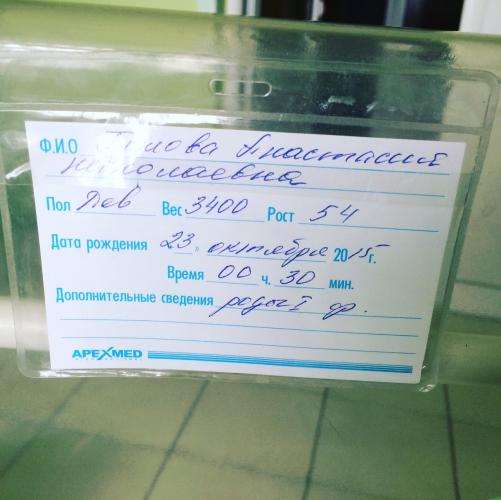 Ф.И.О Анастасия
Николаевна
Пол Дев Вес 3400 Рост 54
Дата рождения 23 » октября 2015 г.
Время 00 ч. 30 мин.
Дополнительные сведения роды I ср.
APEXMED